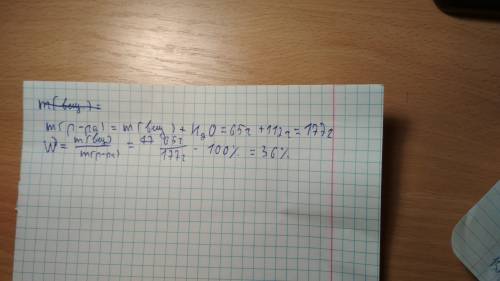 m(вещ) =
m(р-ра) = m(вещ) + H₂O = 65г + 112г = 177г
W = m(вещ)/m(р-ра) = 65г/177г · 100% = 36%